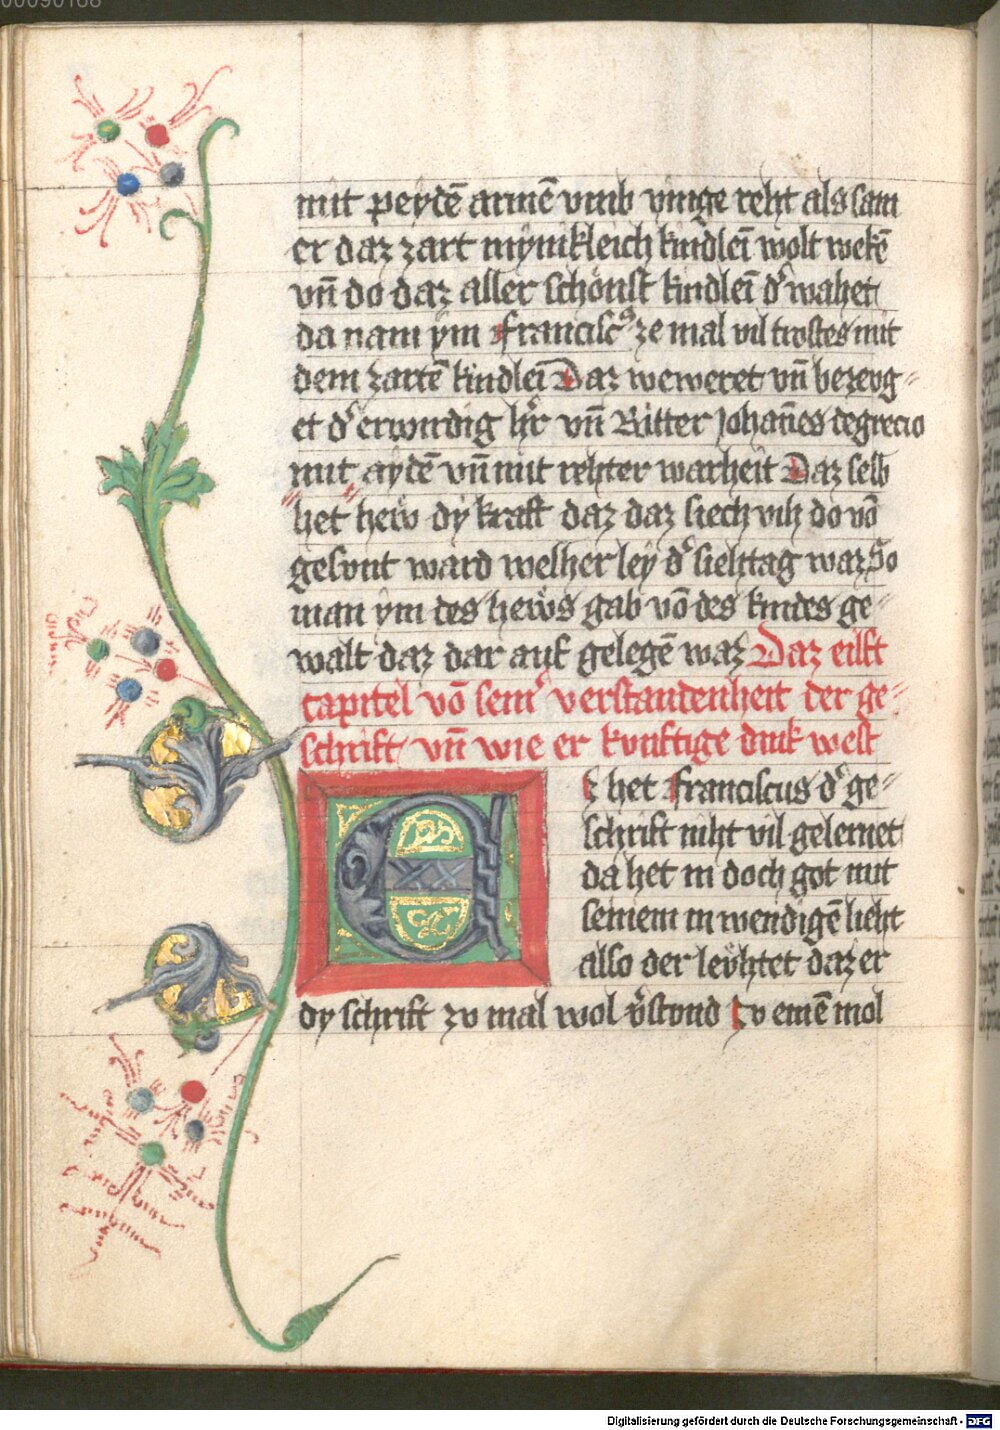 00090168
mit peydē armē vmb vinge reht als sam
er daz zart mynikleich kindleī wolt wekē
vn̄ do daz aller schönst kindleī d͛ wahet
da nam ym franciscꝰ ze mal vil trostes mit
dem zartē kindleī Daz weweret vn̄ bezevg⸗
et d͛ erwirdig h͛r vn̄ Ritter Johan̄es degrecio
mit aydē vn̄ mit rehter warheit Daz selb
het hew dy kraft daz daz siech vih do vō
gesvnt ward welherley d͛ siehtag waz So
man ym des hews gab vō des kindes ge⸗
walt daz dar auf gelegē waz Daz eilft
capitel vō sein͛ verstandenheit der ge⸗
schrift vn̄ wie er kvnftige dink west
E het franciscus d͛ ge⸗
schrift niht vil gelernet
da het in doch got mit
seinem inwendigē lieht
also der levhtet daz er
dy schrift zv mal wol v͛stvnd Zv einē mol
Digitalisierung gefördert durch die Deutsche Forschungsgemeinschaft - DFG